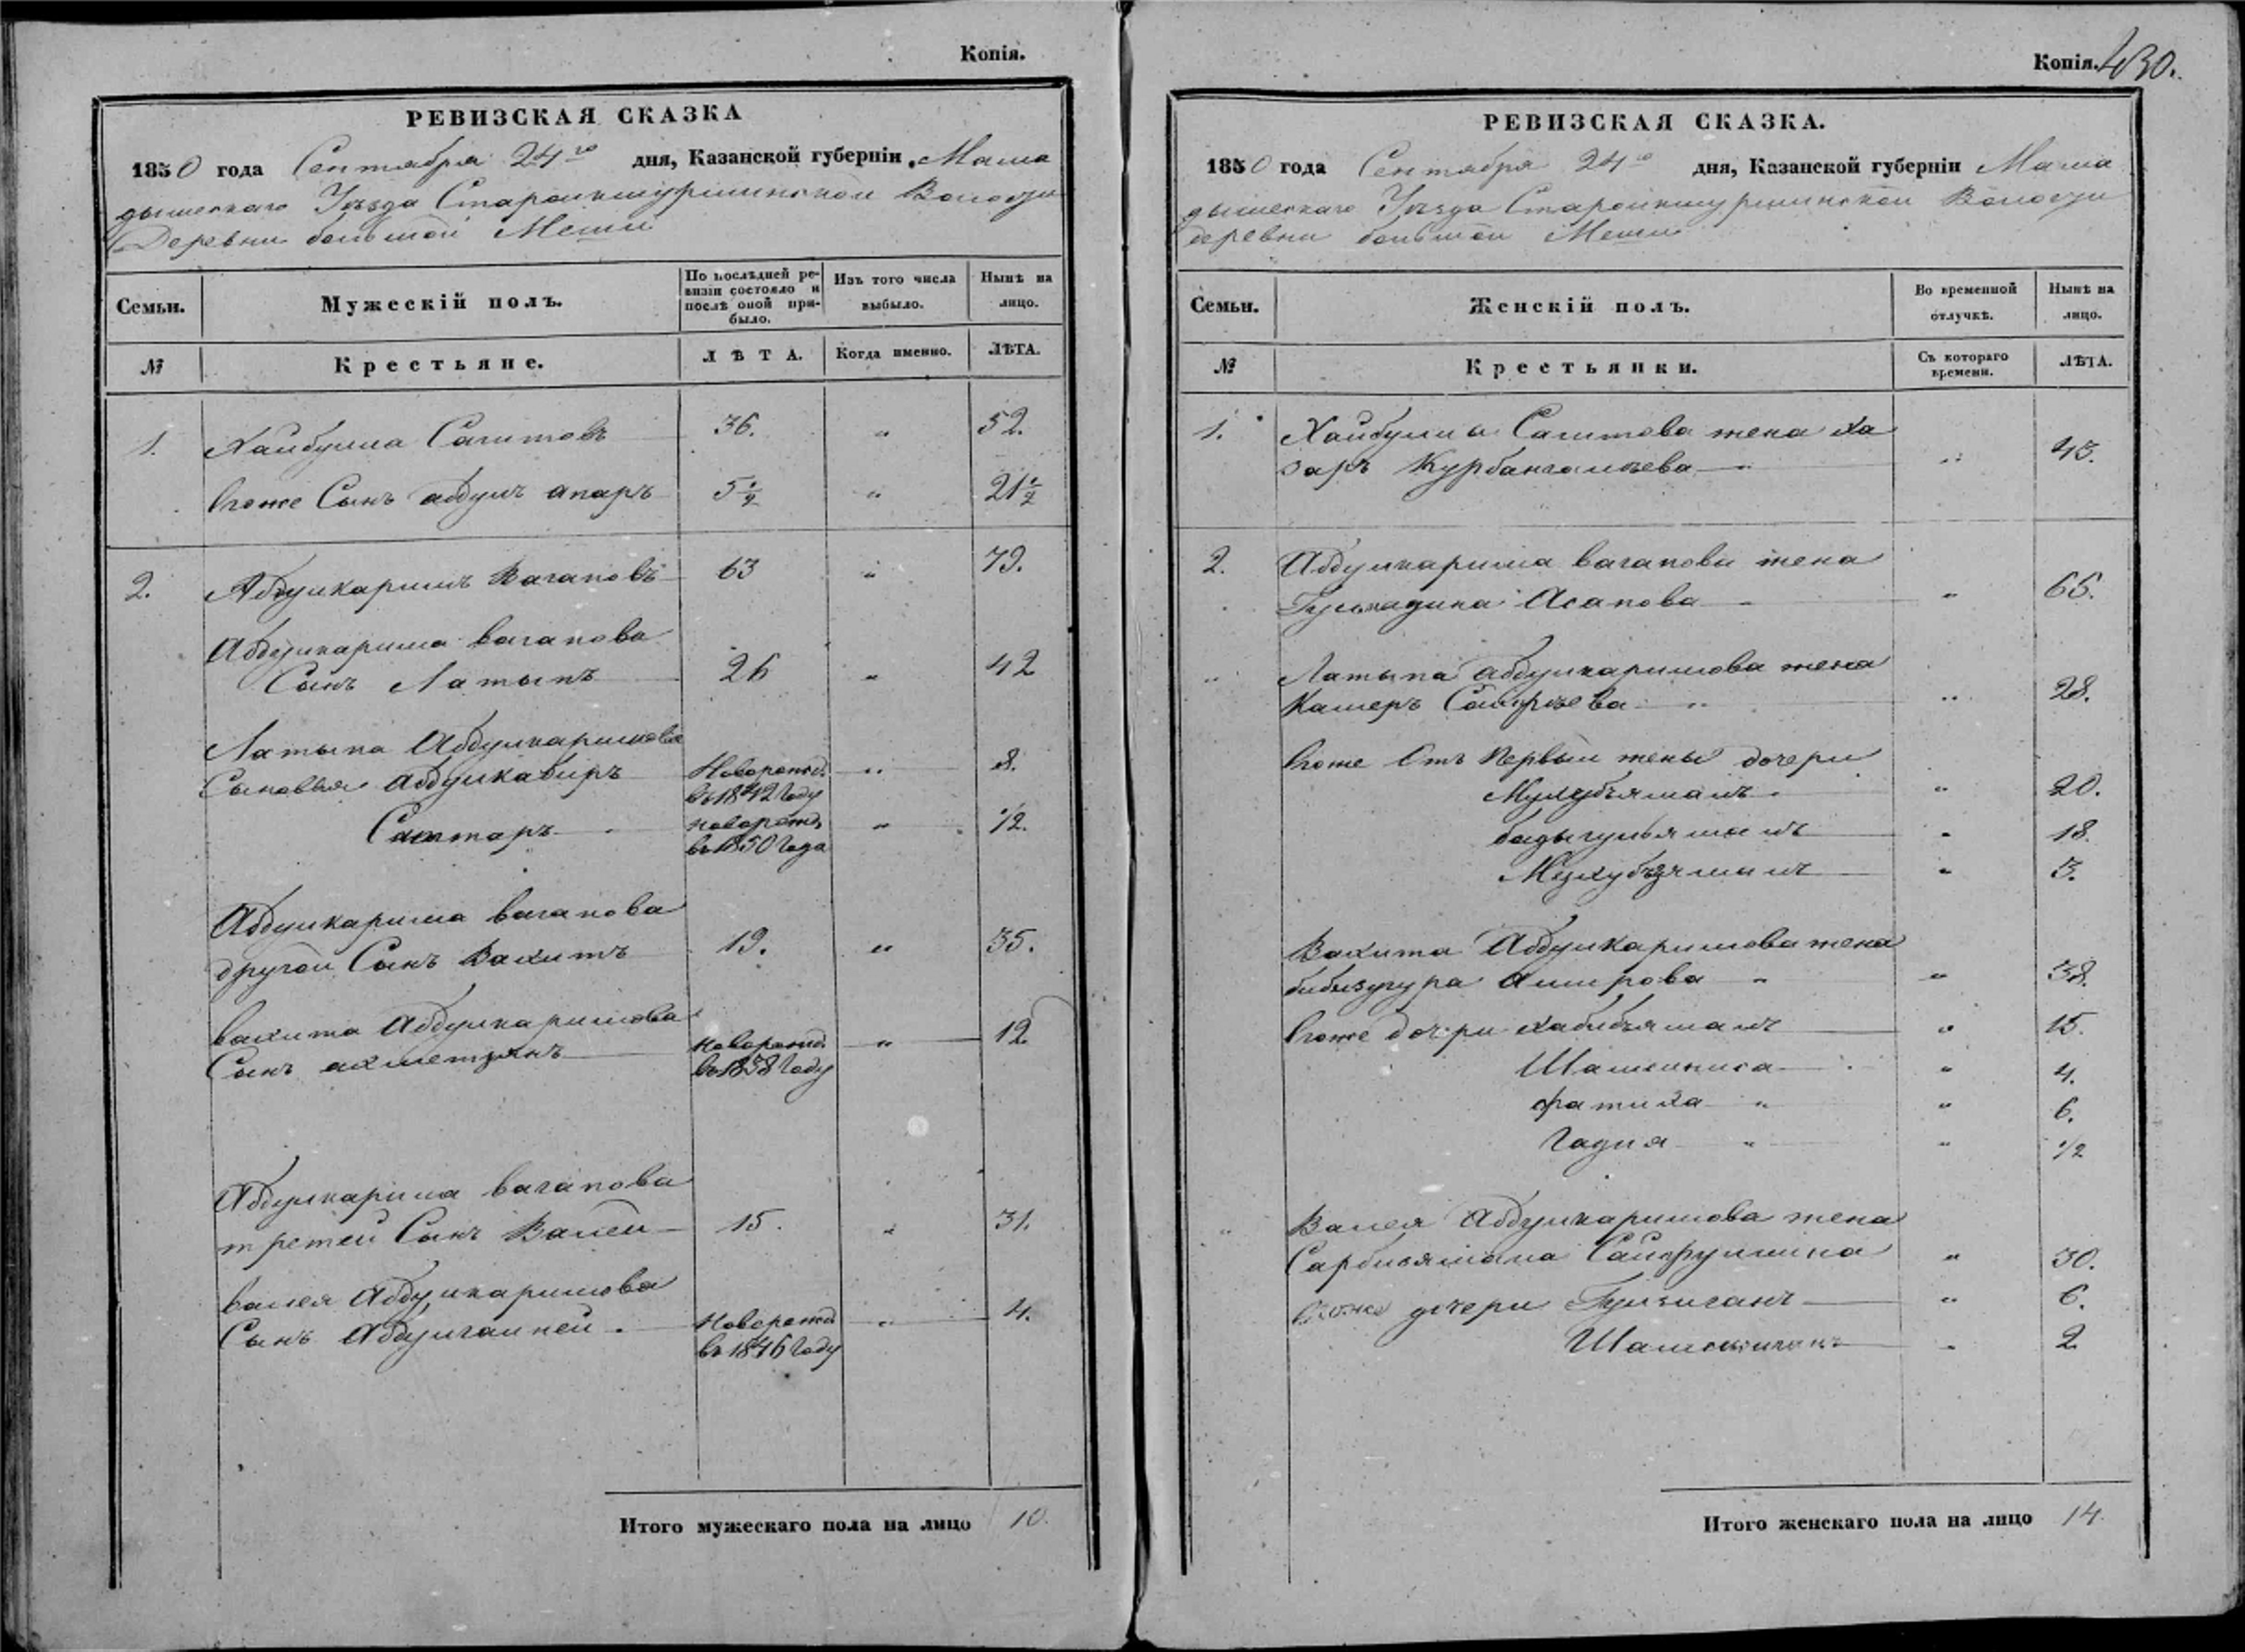 Копія.
РЕВИЗСКАЯ СКАЗКА
1850 года Сентября 24го дня, Казанской губерніи, Мама
дышскаго Уѣзда Староикшурминской Волости
Деревни большой Меши
Семьи.
Мужескій полъ.
По послѣдней ре-
визіи состояло и
послѣ оной при-
было.
Изъ того числа
выбыло.
Нынѣ на
лицо.
№
Крестьяне.
ЛѢТА.
Когда именно.
ЛѢТА.
1. Хайбулла Сагитовъ 36. " 52.
Егоже Сынъ абдулъ апаръ 5½ " 21½
2. Абдулкаримъ Вагаповъ 63 " 79.
Абдулкарима вагапова
Сынъ Латыпъ 26 " 42
Латыпа Абдулкаримова
Сыновья абдулкабиръ Новорожд. " 8.
въ 1842 Году
Саттаръ новорожд. " 1/2.
въ 1850 Года
Абдулкарима вагапова
другой Сынъ Вахитъ 19. " 35.
вахита Абдулкаримова
Сынъ ахметзянъ новорожд. " 12
въ 1838 Году
Абдулкарима вагапова
третей Сынъ Валей 15. " 31.
валея Абдулкаримова
Сынъ Абдулганей. Новорожд. " 4.
въ 1846 Году
Итого мужескаго пола на лицо 10.
Копія. 430.
РЕВИЗСКАЯ СКАЗКА.
1850 года Сентября 24го дня, Казанской губерніи Мама
дышскаго Уѣзда Староикшурминской Волости
деревни большой Меши
Семьи.
Женскій полъ.
Во временной
отлучкѣ.
Нынѣ на
лицо.
№
Крестьянки.
Съ котораго
времени.
ЛѢТА.
1. Хайбуллы Сагитова жена Ха
заръ Курбангалѣева " 43.
2. Абдулкарима вагапова жена
Гульмадина Асапова " 65.
" Латыпа абдулкаримова жена
Камеръ Сайфѣева " 28.
Егоже Отъ Первый жены дочери
Мухубзямалъ " 20.
бадыгульямалъ " 18.
Мухубзямалъ " 3.
Вахита Абдулкаримова жена
бибизугура Амирова " 38.
Егоже дочери хабибзямалъ " 15.
Шамсиниса " 4.
фатиха " 6.
Гадия " 1/2
" Валея Абдулкаримова жена
Сарбиямала Сайфуллина " 30.
Егоже дочери Гулзиганъ " 6.
Шамсыиганъ " 2
Итого женскаго пола на лицо 14.